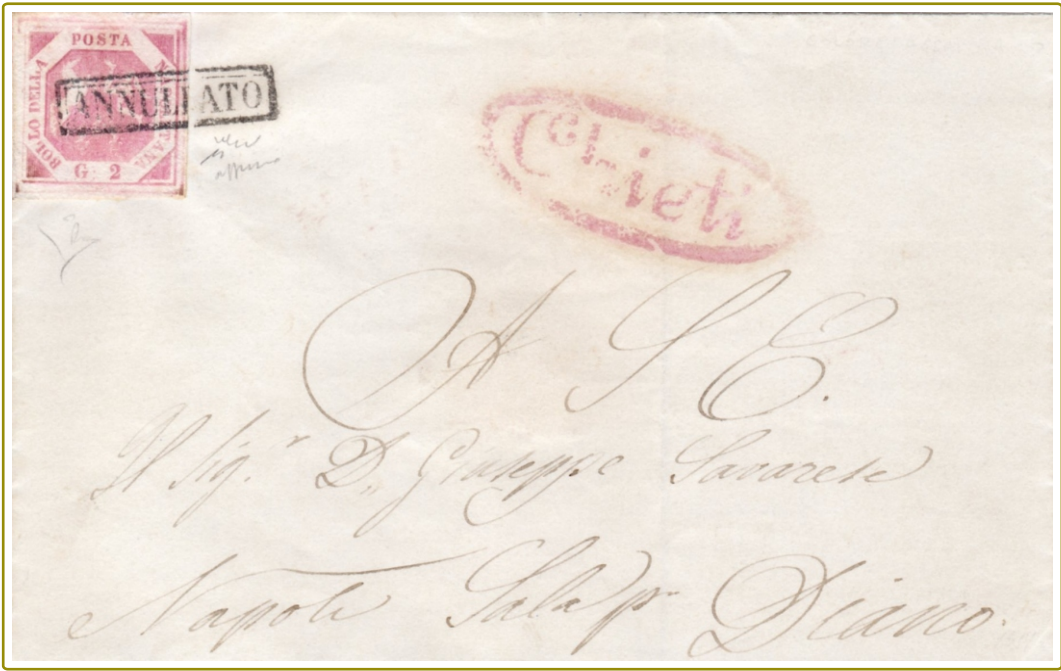 POSTA
NAPOLETANA
BOLLO DELLA
G 2
ANNULLATO
Chieti
A S E.
Il Sig.r D. Giuseppe Savarese
Napoli Sala pr Diano.